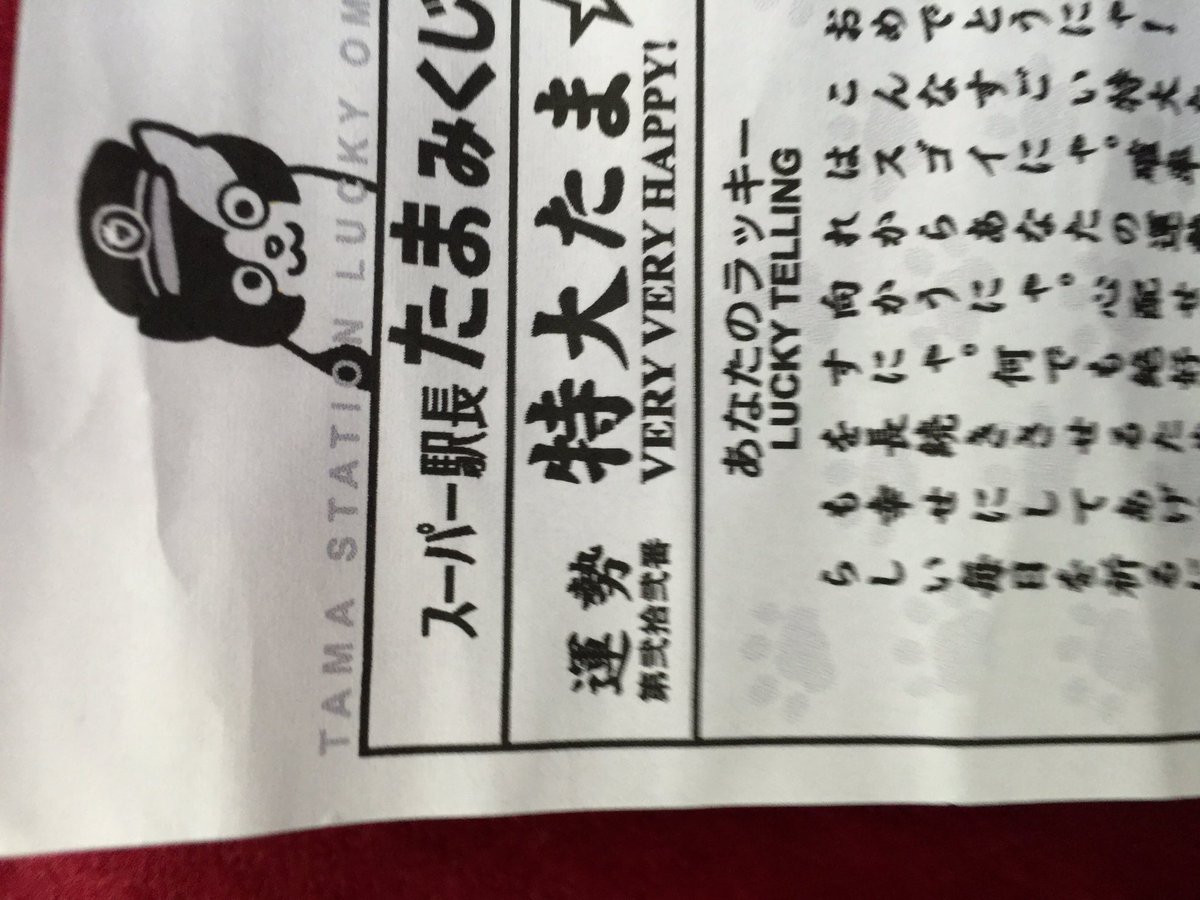 TAMA STATION LUCKY OM
スーパー駅長たまみくじ
運勢
第弐拾弐番
特大たま☆
VERY VERY HAPPY!
あなたのラッキー
LUCKY TELLING
おめでとうにゃ!
こんなすごい特大
はスゴイにゃ。運
れからあなたの運
向かうにゃ。心配せ
すにゃ。何でも絶好
を長続きさせるた
も幸せにしてあげ
らしい毎日を祈るに